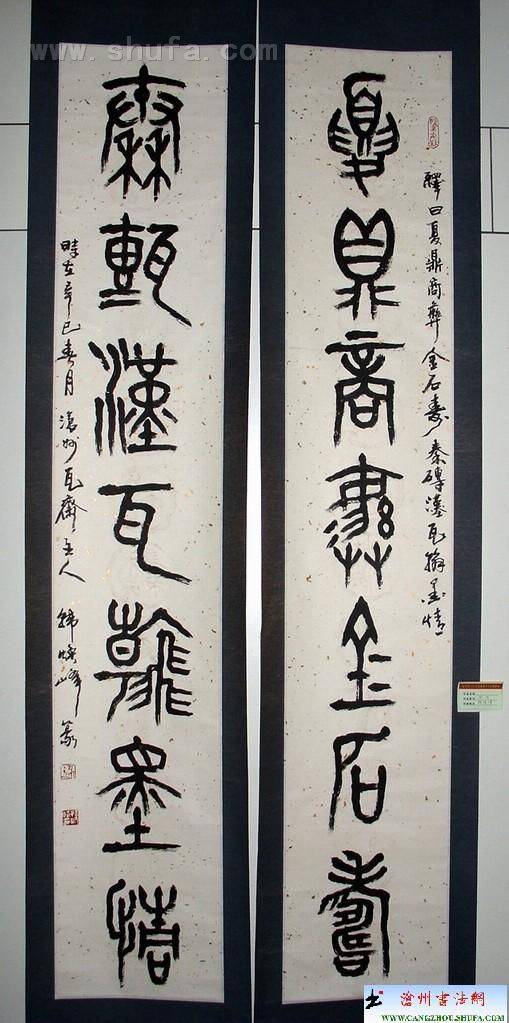 www.shufa.com
夏鼎商彝金石壽
釋曰夏鼎商彝金石壽秦磚漢瓦翰墨情
秦甎漢瓦翰墨情
時在辛巳春月滄州瓦齋主人韓煥峰篆
滄州书法網
WWW.CANGZHOU.SHUFA.COM